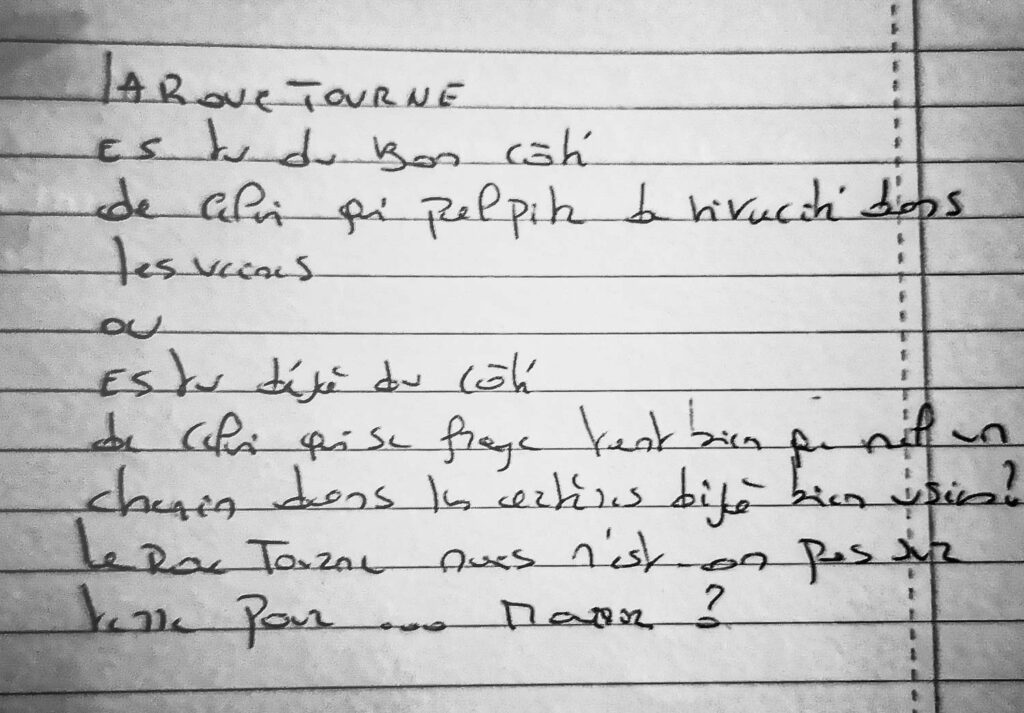 LA ROUE TOURNE
ES tu du Bon côté
de celui qui palpite de vivacité dans
les veines
ou
ES tu déjà du côté
de celui qui se fraye tant bien que mal un
chemin dans les artères déjà bien usées?
Le Roue Tourne mais n'est-on pas sur
terre pour ... Mourir ?